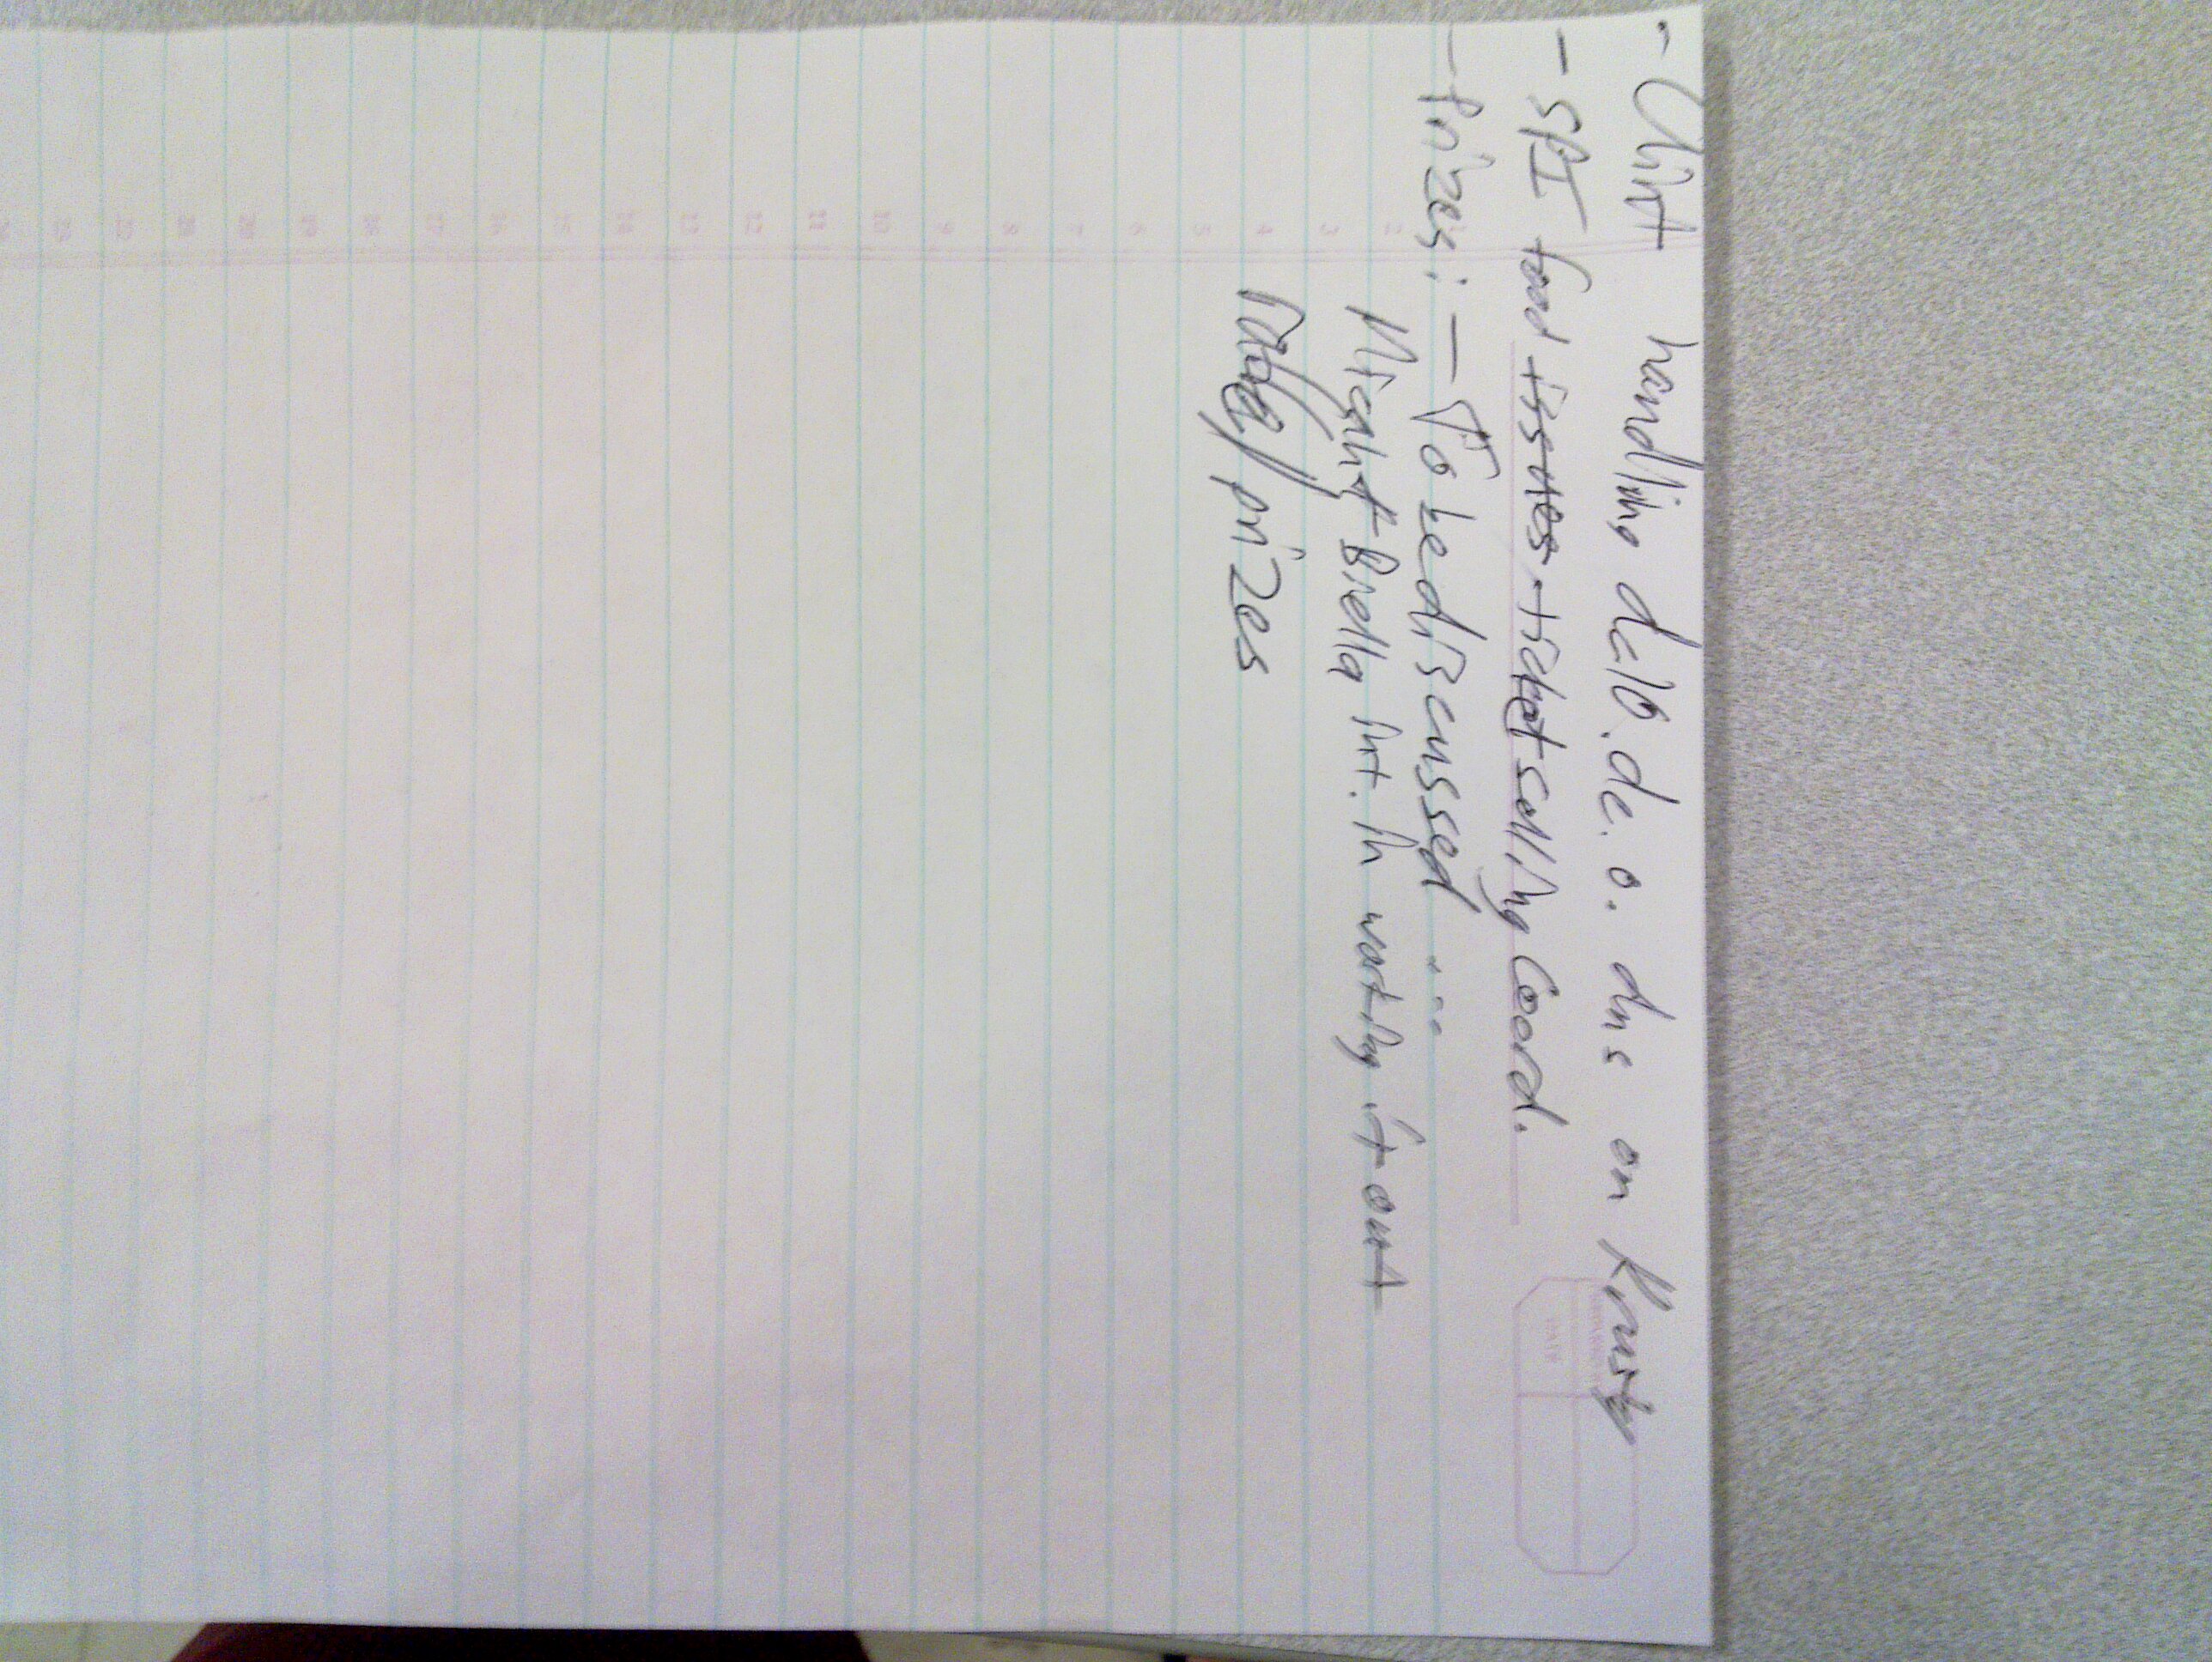 - Clint handling de10.de.o. dns on Krusty
- SPI food issues. ticket selling Coord.
- Prizes: - To be discussed ...
Micah & Brella int. in working it out
/ prizes